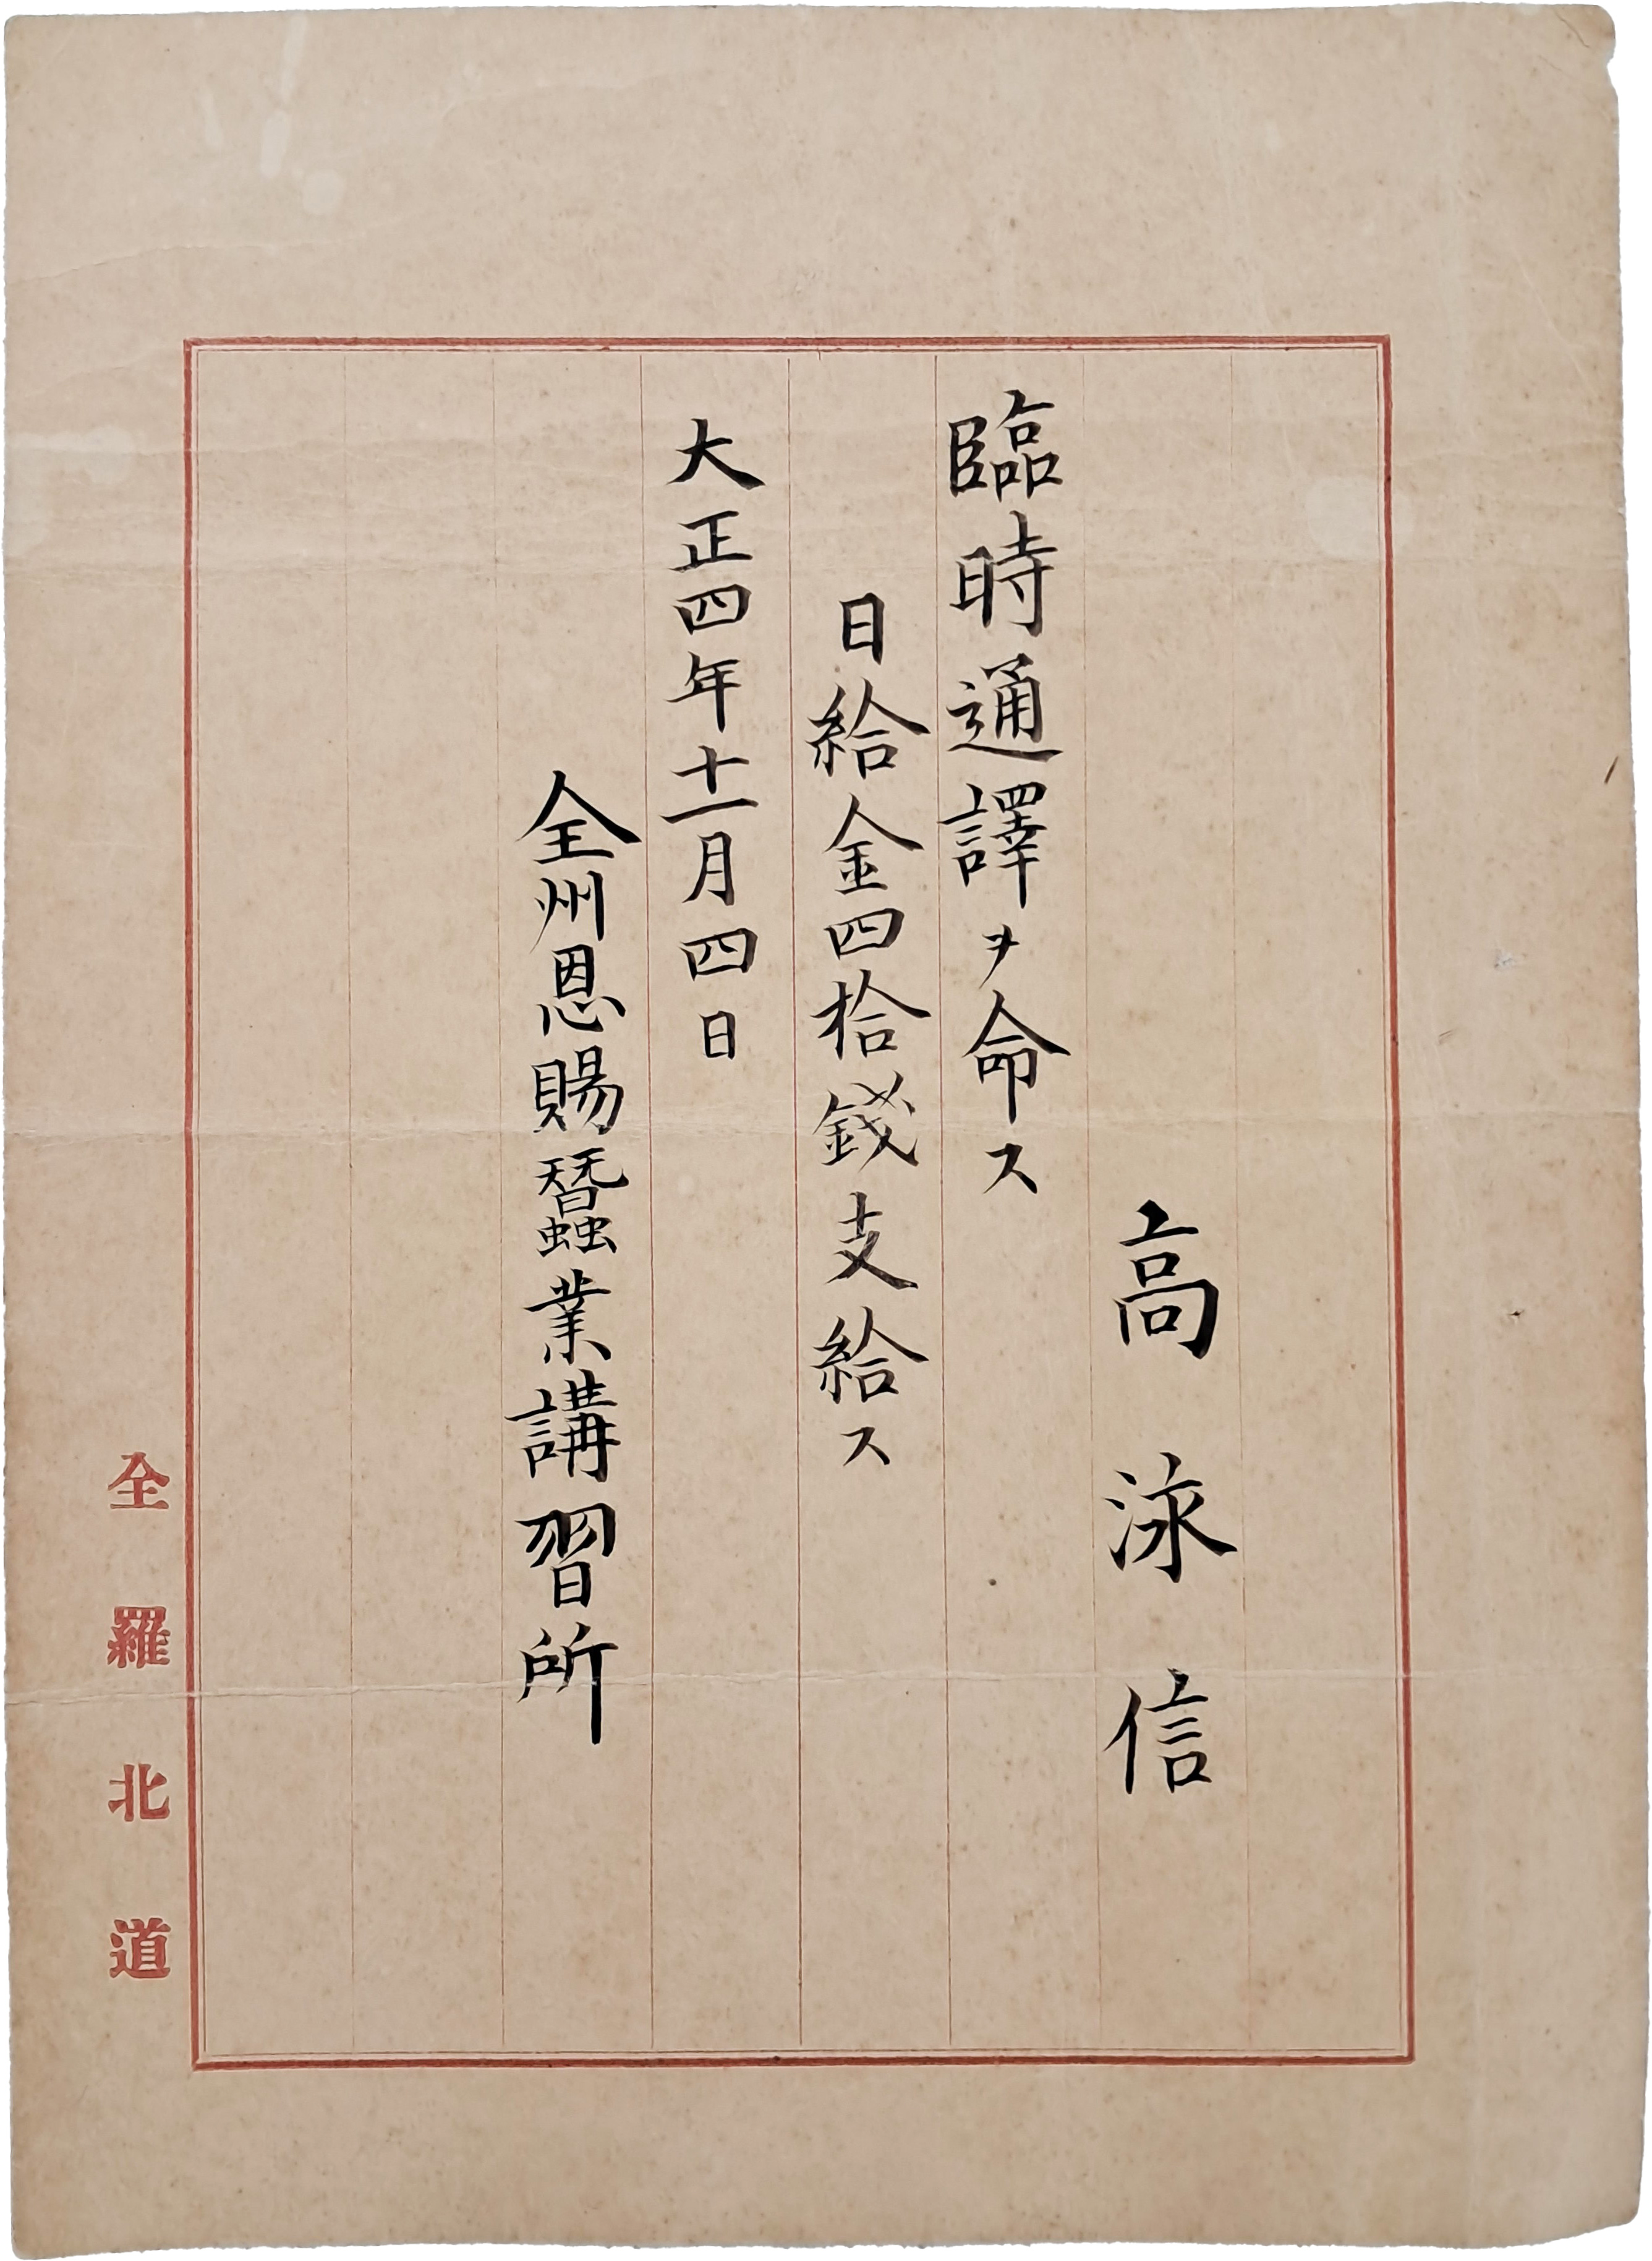 高泳信
臨時通譯ヲ命ス
日給金四拾錢支給ス
大正四年十一月四日
全州恩賜蠶業講習所
全羅北道